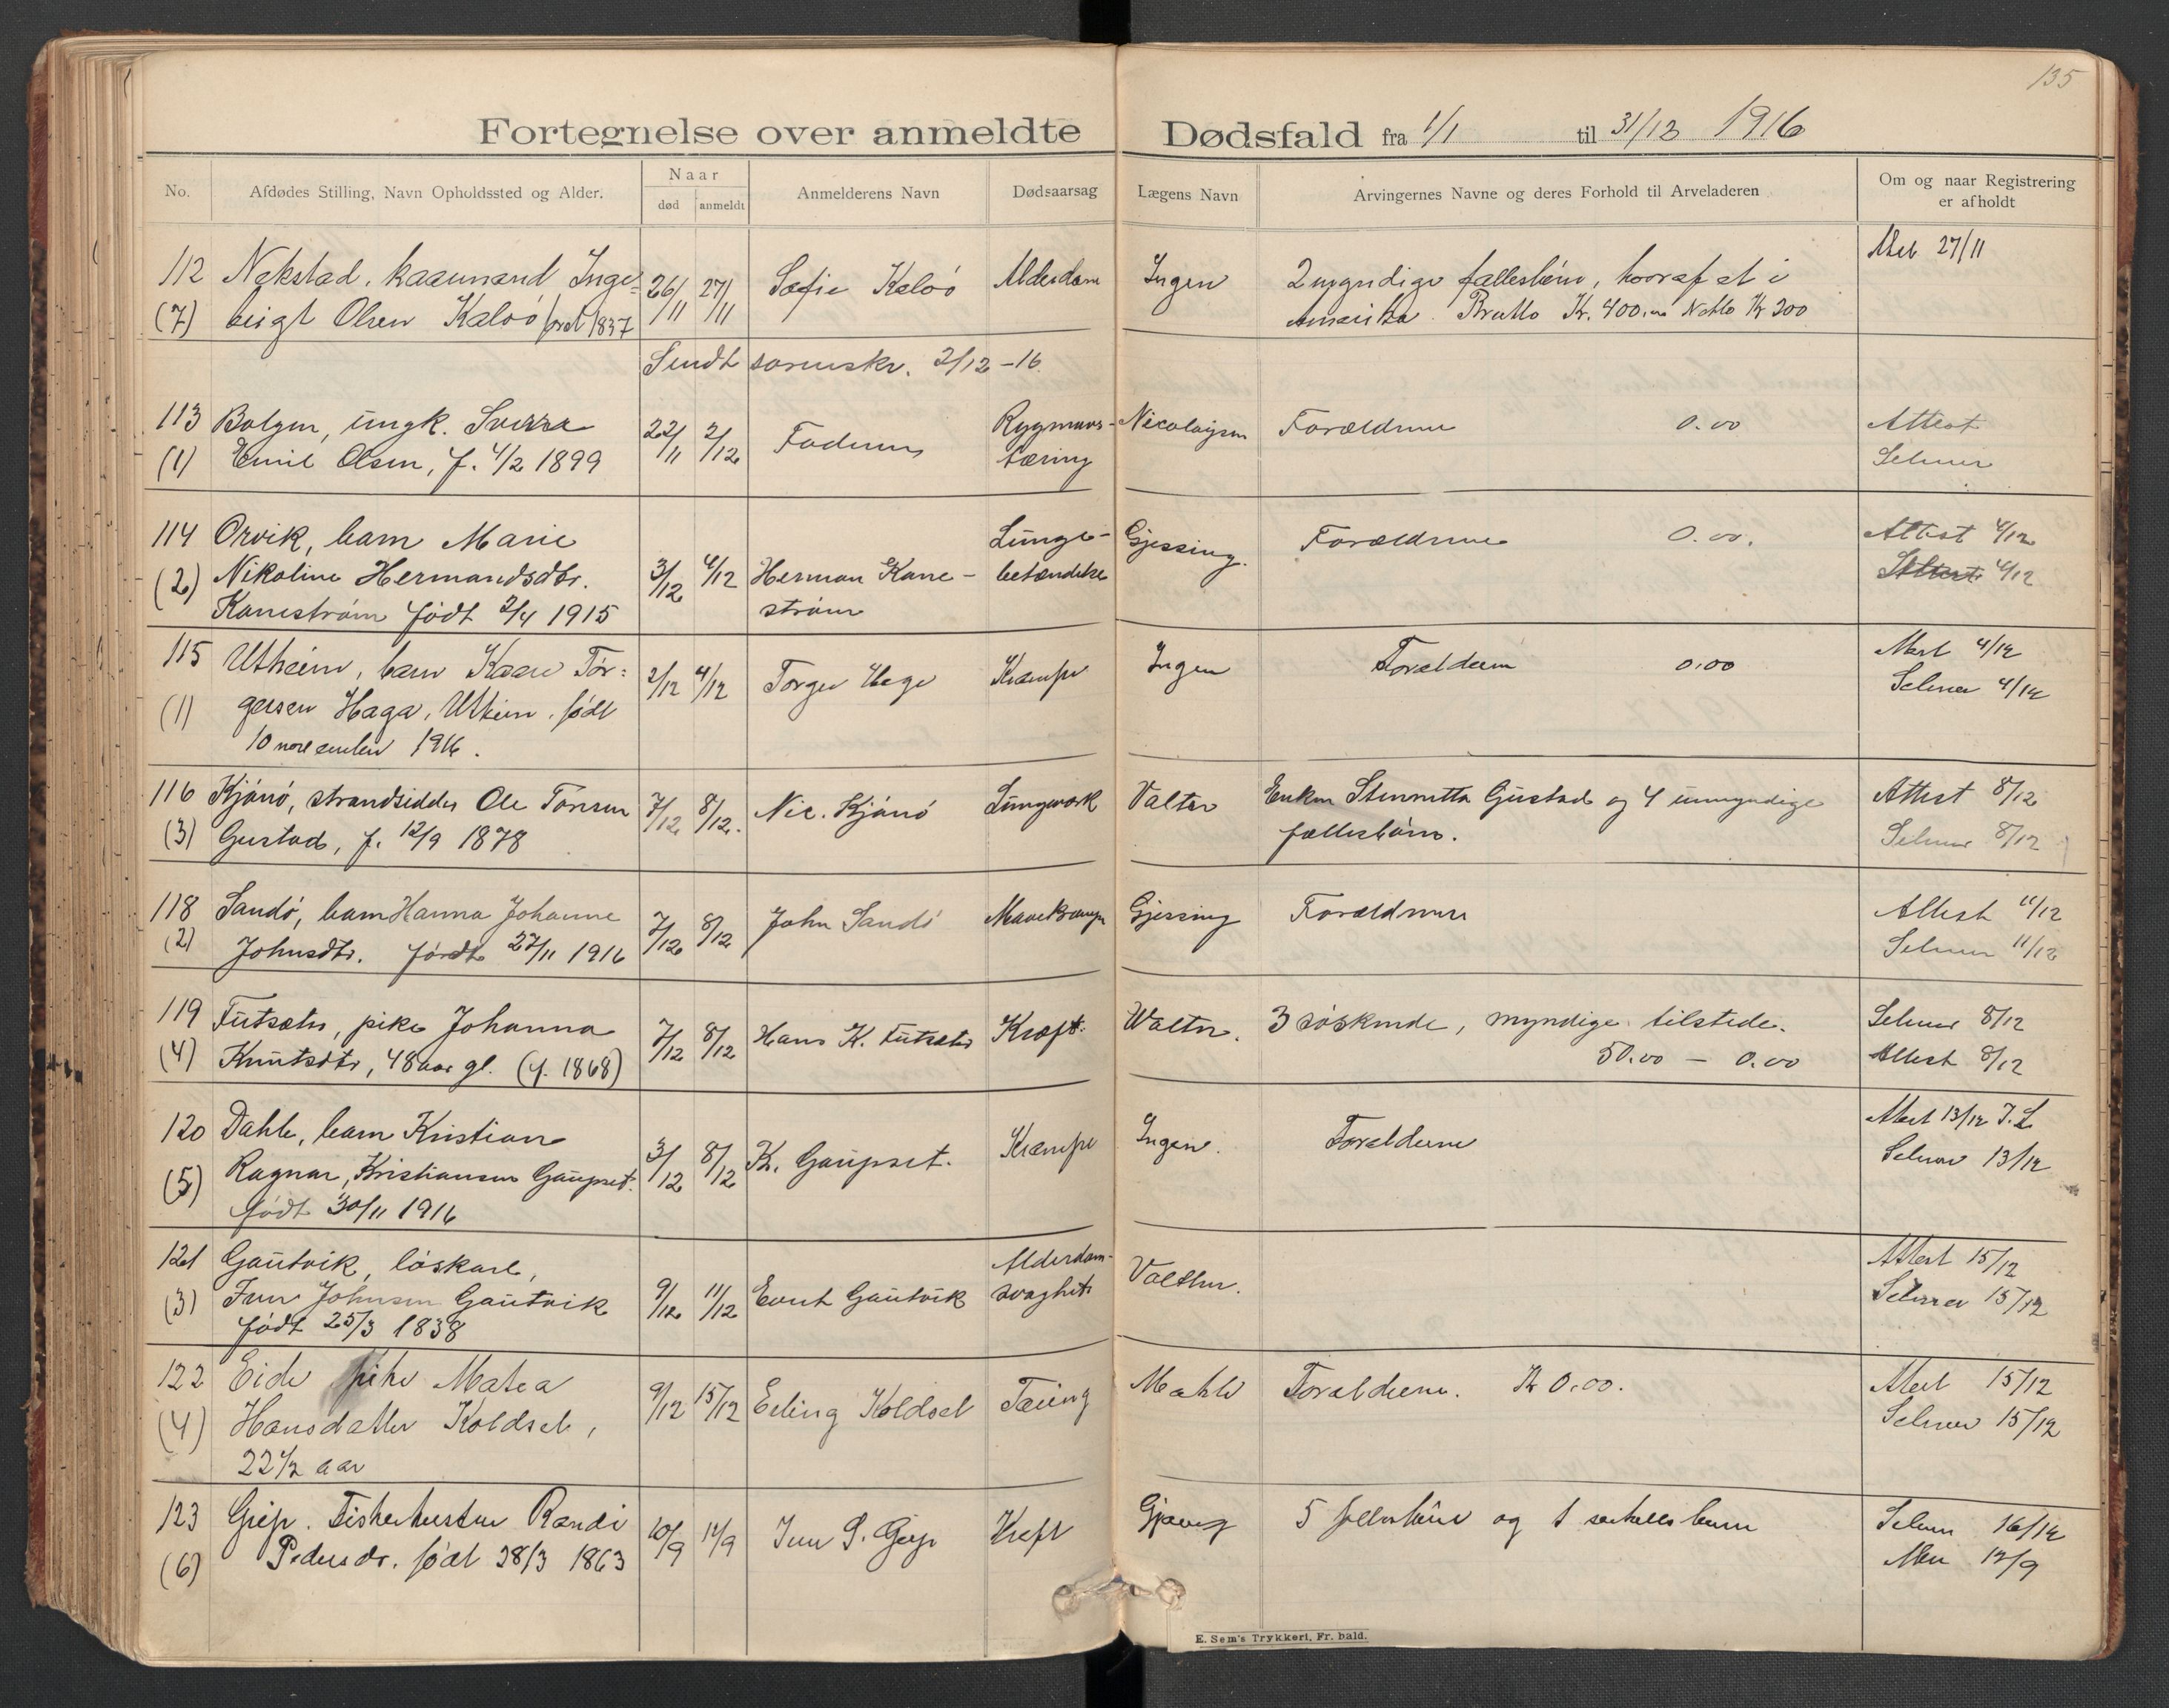 135
Fortegnelse over anmeldte Dødsfald fra 1/1 til 31/12 1916
No. Afdødes Stilling, Navn Opholdssted og Alder. Naar død anmeldt Anmelderens Navn Dødsaarsag Lægens Navn Arvingernes Navne og deres Forhold til Arveladeren Om og naar Registrering er afholdt
112 Nekstad, kaarmand Inge- 26/11 27/11 Sofie Kaloö Alderdom Ingen 2 myndige fællesbörn, hvoraf et i Attest 27/11
(7) brigt Olsen Kaloö født 1837 Amerika. Brutto Kr. 400.00 Netto Kr 300
Sendt sorenskr. 2/12-16.
113 Bolgen, ungk. Sverre 22/11 2/12 Faderen Rygmarvs- Nicolaysen Forældrene 0.00 Attest
(1) Emil Olsen, f. 4/2 1899 tæring Selmer
114 Orvik, barn Marie Lunge- Gjessing. Forældrene 0.00. Attest 4/12
(2) Nikoline Hermandsdtr. 3/12 4/12 Herman Kane- betændelse Attest 4/12
Kaneström födt 2/4 1915 ström
115 Utheim, barn Kaare Tor- 2/12 4/12 Torger Hage Krampe Ingen Forældrene 0.00 Attest 4/12
(1) gersen Haga, Utheim, födt Selmer 4/12
10 november 1916.
116 Kjönö, strandsidder Ole Tönsen 7/12 8/12. Nic. Kjönö Lungesvek Valter Enken Gustad og 4 umyndige Attest 8/12
(3) Gustad, f. 12/9 1878 fællesbörn. Selmer 8/12
118 Sandö, barn Hanna Johanne 7/12 8/12 John Sandö Mavekrampe Gjessing Forældrene Attest 11/12
(2) Johnsdtr. födt 27/11 1916 Selmer 11/12
119 Futsæter, pike Johanna 7/12 8/12 Hans K. Futsæter Kræft. Walter. 3 söskende, myndige tilstede. Selmer 8/12
(4) Knutsdtr, 48 aar gl. (f. 1868) 50.00 — 0.00 Attest 8/12
120 Dahle, barn Kristian 3/12 8/12 K. Gaupset. Krampe Ingen. Forældrene Attest 13/12 J.L
(5) Ragnar, Kristiansen Gaupset. Selmer 13/12
födt 30/11 1916
121 Gautvik, löskarl, Alderdom- Valther. Attest 15/12
(3) Johnsen Gautvik 9/12 11/12 Gautvik svaghet Selmer 15/12
födt 25/3 1838
122 Eide pike Matea 9/12 15/12 Erling Koldset Tæring Mahle Forældrene. Kr 0.00. Attest 15/12
(4) Hansdatter Koldset, Selmer 15/12
22 1/2 aar
123 Grip. Fiskerhustru Randi 10/9 12/9 Grip Kreft 5 fællesbörn og 1 særkullsbarn Selmer 16/12
(6) Pedersdr. födt 28/3 1863 12/9
E. Sem's Trykkeri, Fr. hald.